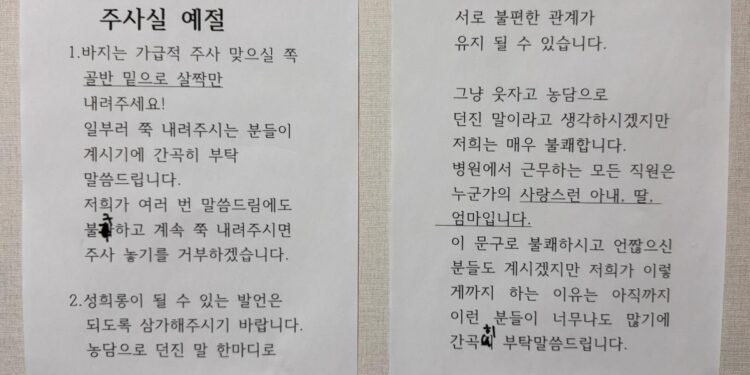 주사실 예절
1.바지는 가급적 주사 맞으실 쪽
골반 밑으로 살짝만
내려주세요!
일부러 쭉 내려주시는 분들이
계시기에 간곡히 부탁
말씀드립니다.
저희가 여러 번 말씀드림에도
불구하고 계속 쭉 내려주시면
주사 놓기를 거부하겠습니다.
2.성희롱이 될 수 있는 발언은
되도록 삼가해주시기 바랍니다.
농담으로 던진 말 한마디로
서로 불편한 관계가
유지 될 수 있습니다.
그냥 웃자고 농담으로
던진 말이라고 생각하시겠지만
저희는 매우 불쾌합니다.
병원에서 근무하는 모든 직원은
누군가의 사랑스런 아내, 딸,
엄마입니다.
이 문구로 불쾌하시고 언짢으신
분들도 계시겠지만 저희가 이렇
게까지 하는 이유는 아직까지
이런 분들이 너무나도 많기에
간곡히 부탁말씀드립니다.